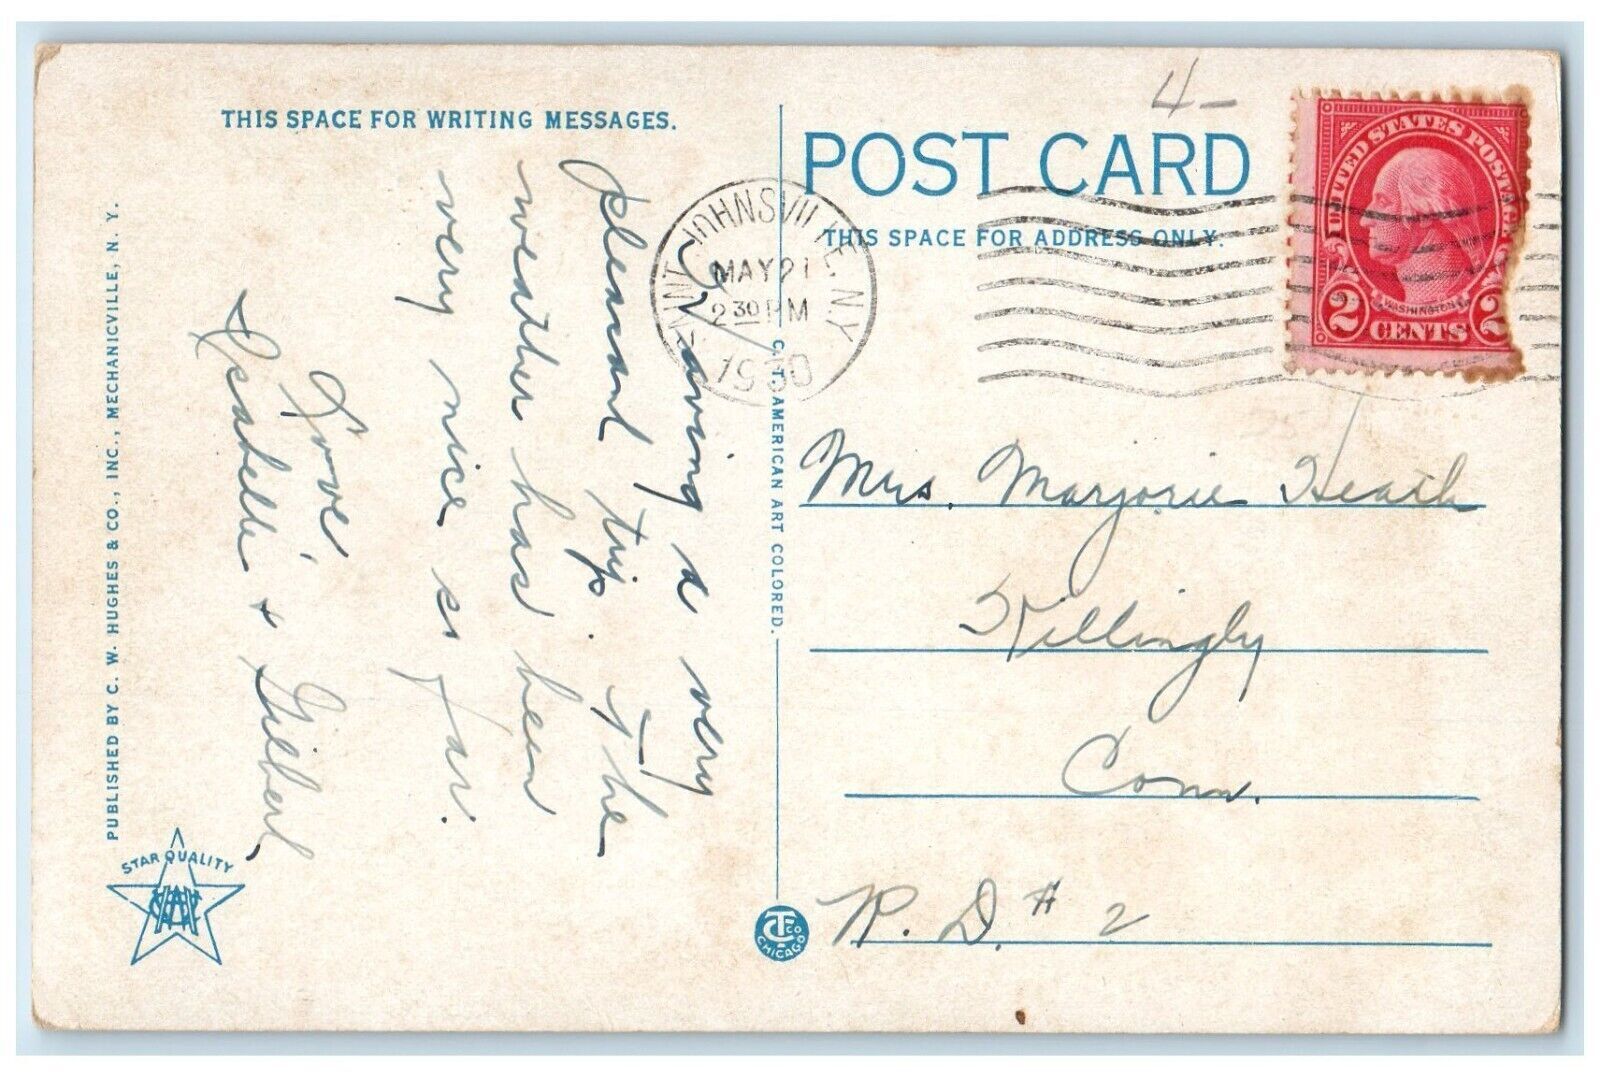 4-
THIS SPACE FOR WRITING MESSAGES.
POST CARD
THIS SPACE FOR ADDRESS ONLY.
UNITED STATES POSTAGE
WASHINGTON
2 CENTS 2
JOHNSVILLE, N.Y.
MAY 21
2 30 PM
1930
Having a very
pleasant trip. The
weather has been
very nice so far.
Love,
Isabelle & Gilbert
Mrs. Marjorie Heath
Killingly
Conn.
R. D. # 2
PUBLISHED BY C. W. HUGHES & CO., INC., MECHANICVILLE, N. Y.
C. T. AMERICAN ART COLORED.
STAR QUALITY
CTCO
CHICAGO